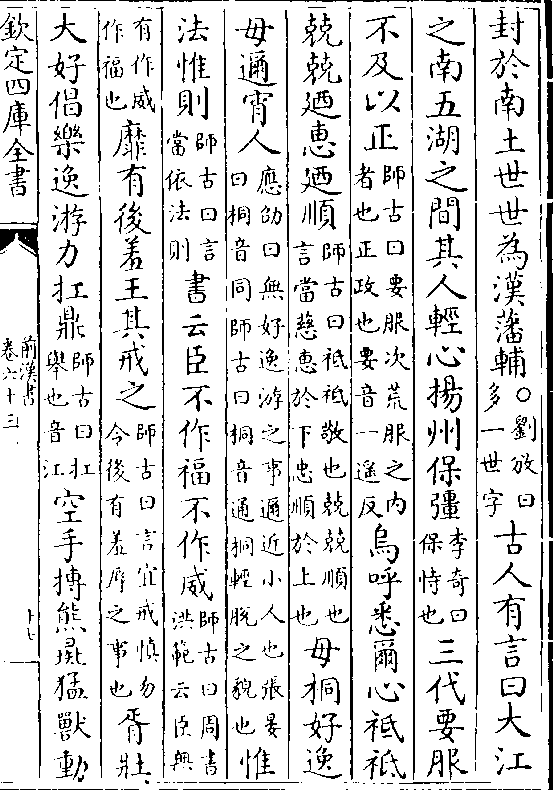 封於南土世世為漢藩輔○劉攽曰多一世字古人有言曰大江
之南五湖之間其人輕心揚州保彊李奇曰保恃也三代要服
不及以正師古曰要服次荒服之内者也正政也要音一遥反烏呼悉爾心祗祗
兢兢廼惠廼順師古曰祗祗敬也兢兢順也言當慈惠於下忠順於上也毋桐好逸
毋邇宵人應劭曰無好逸游之事邇近小人也張晏曰桐音同師古曰桐音通桐輕脱之貌也惟
法惟則師古曰言當依法則書云臣不作福不作威師古曰周書洪範云臣無
有作威作福也靡有後羞王其戒之師古曰言宜戒慎勿今後有羞辱之事也胥壯
大好倡樂逸游力扛鼎師古曰扛舉也音江空手搏熊彘猛獸動
欽定四庫全書
前漢書
卷六十三
十七